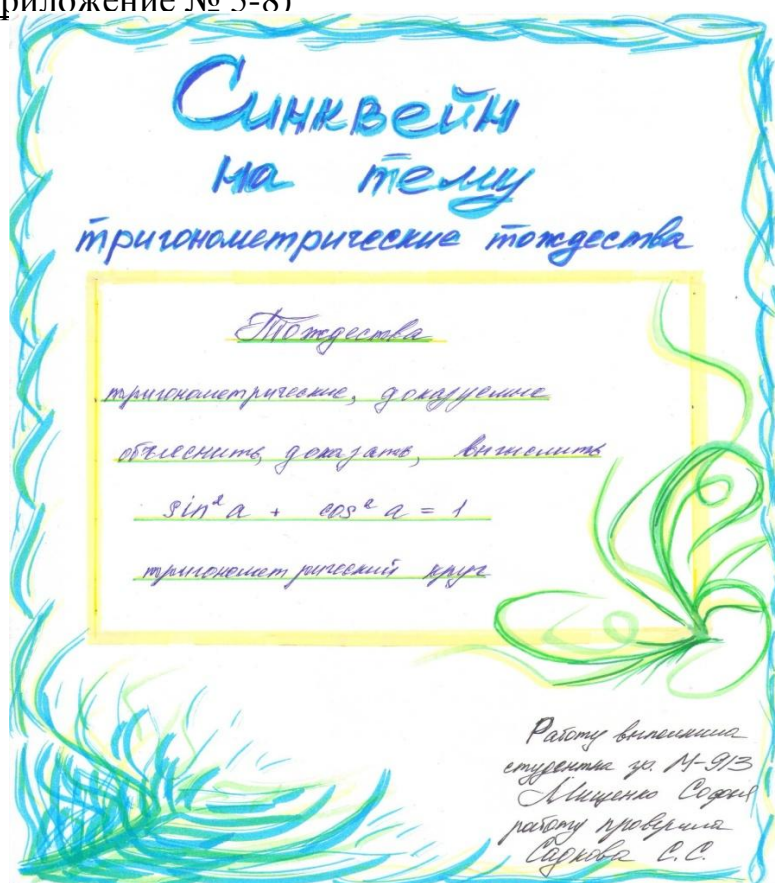 риложение № 5-8)
Синквейн
на тему
тригонометрические тождества
Тождества
тригонометрические, доказуемые
объяснить, доказать, вычислить
sin² a + cos² a = 1
тригонометрический круг
Работу выполнила
студентка гр. М-913
Мищенко Софья
работу проверила
Садкова С.С.